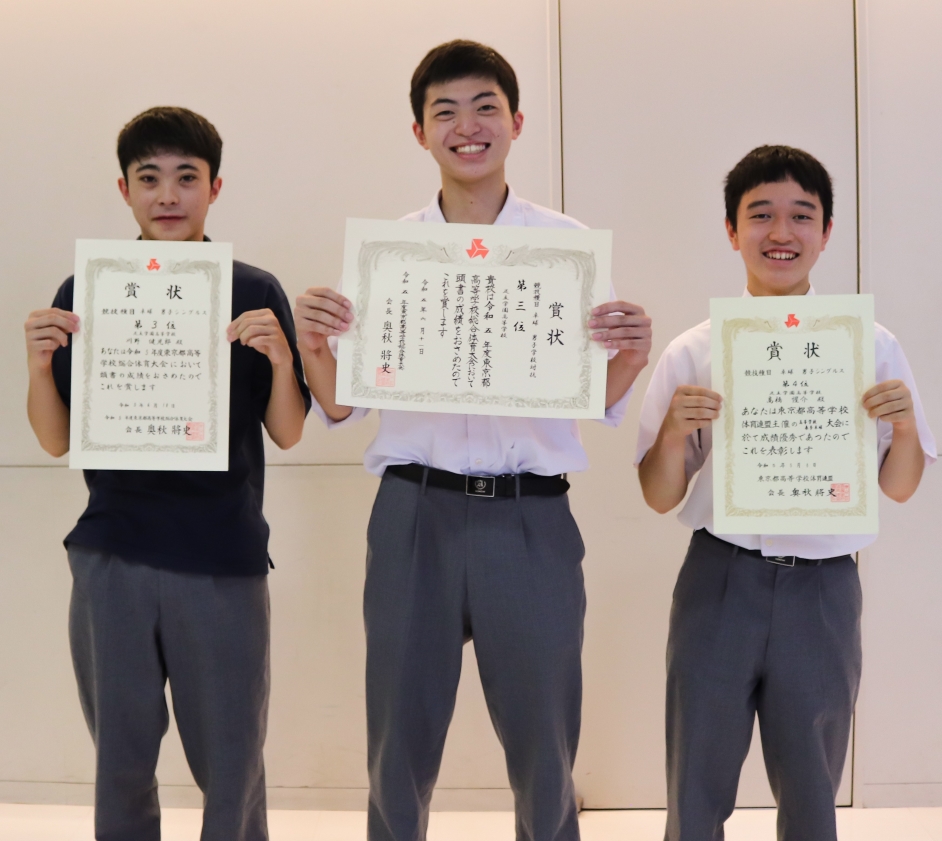 賞状
競技種目 卓球 男子シングルス
第3位
あなたは令和5年度東京都高等
学校総合体育大会において
頭書の成績をおさめたので
これを賞します
会長 奥秋將史
賞状
競技種目 卓球 男子学校対抗
第三位
貴校は令和五年度東京都
高等学校総合体育大会において
頭書の成績をおさめたので
これを賞します
会長 奥秋將史
賞状
競技種目 卓球 男子シングルス
高橋
あなたは東京都高等学校
体育連盟主催の
大会に
於て成績優秀であつたので
これを表彰します
東京都高等学校体育連盟
会長 奥秋將史